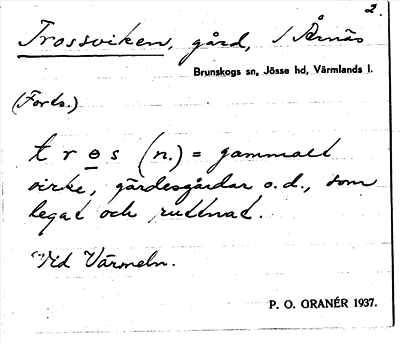 2.
Trossviken, gård, / Årnäs
Brunskogs sn, Jösse hd, Värmlands l.
(Forts.)
t r ɵ s (n.) = gammalt
virke, gärdesgårdar o.d., som
legat och ruttnat.
Vid Värmeln.
P. O. GRANÉR 1937.